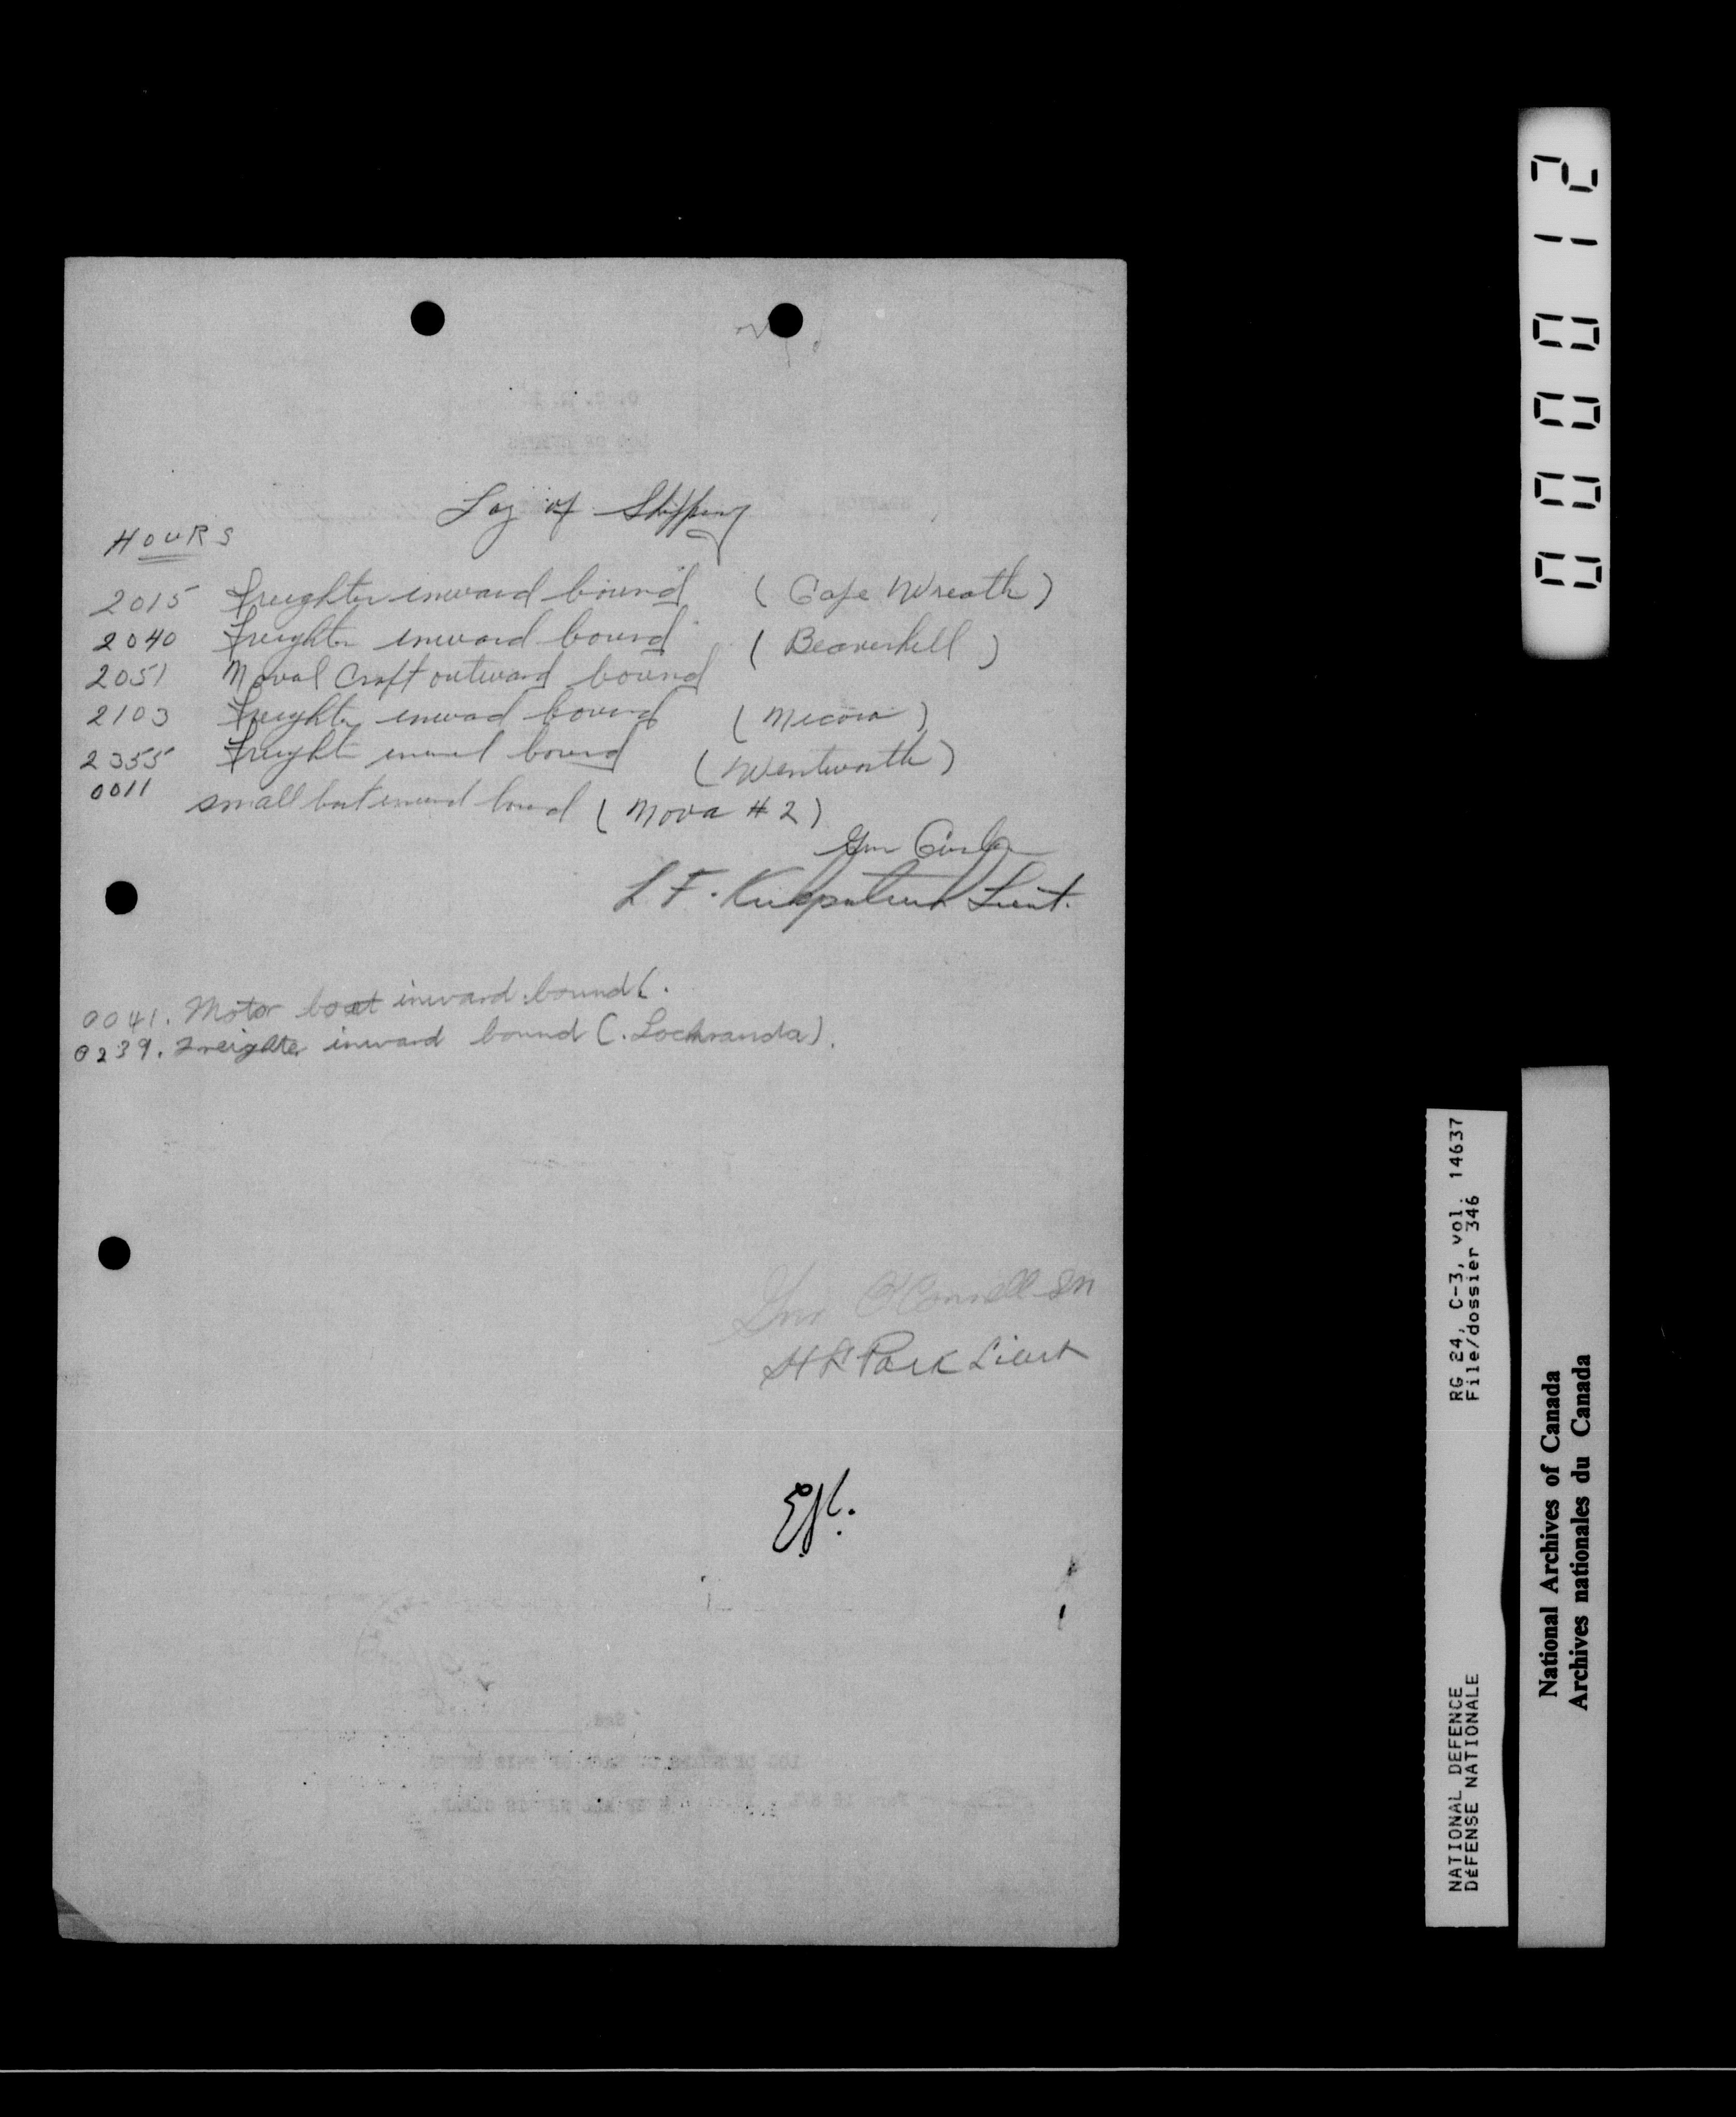 Log of Shipping
HOURS
2015 Freighter inward bound (Cape Wreath)
2040 Freighter inward bound (Beaverhill)
2051 Naval Craft outward bound
2103 Freighter inward bound (Mecora)
2355 Freight inward bound (Wentworth)
0011 small boat inward bound (Nova #2)
Gnr
L F. Kirkpatrick Lieut.
0041. Motor boat inward bound (.
0239. Freighter inward bound (. Lochranda).
Gnr O'Connell
Park Lieut
000012
RG 24, C-3, vol. 14637
File/dossier 346
NATIONAL DEFENCE
DÉFENSE NATIONALE
National Archives of Canada
Archives nationales du Canada